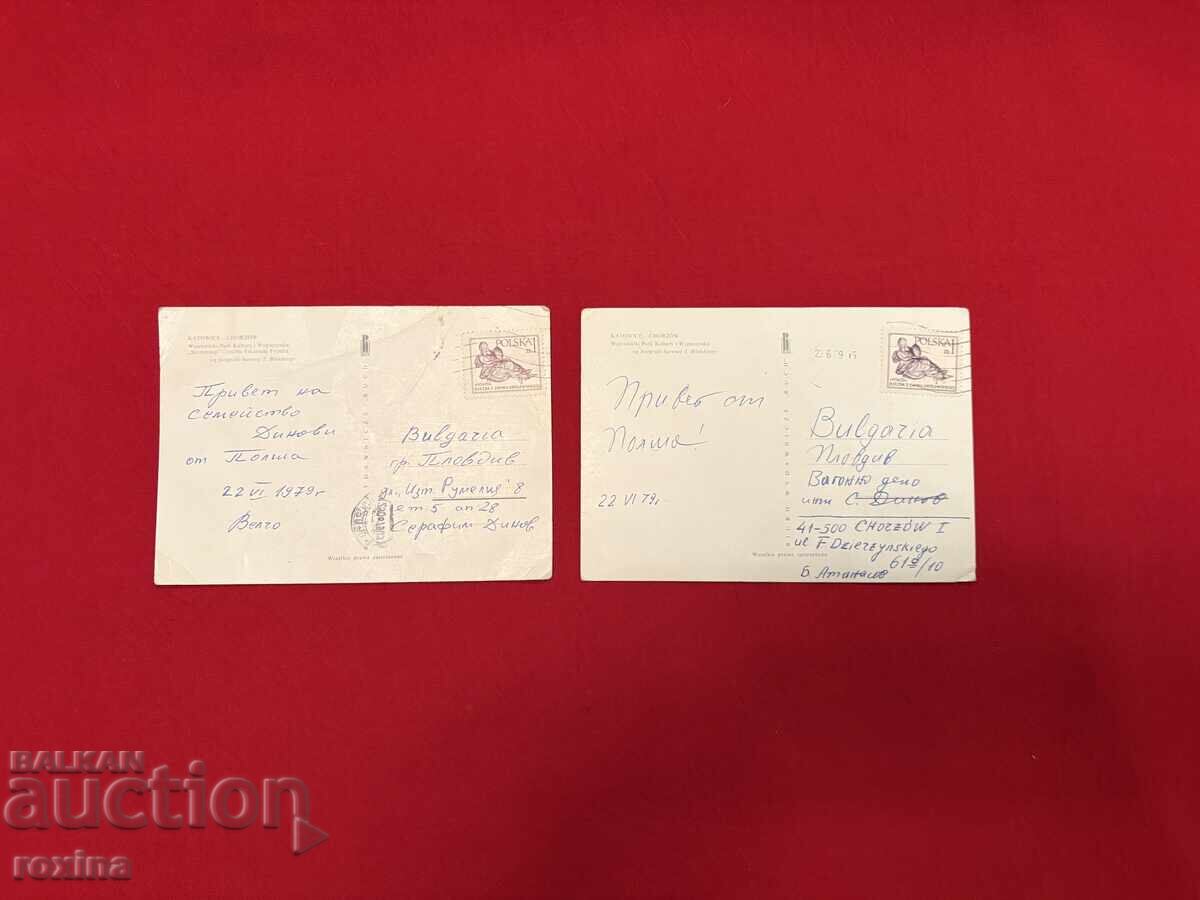 KATOWICE - CHORZÓW
Wojewódzki Park Kultury i Wypoczynku
Привет на
семейство
Динови
от Полша
22 VI 1979г
Велчо
POLSKA
Bulgaria
гр. Пловдив
ул. "Изт. Румелия" 8
ет 5 ап 28
Серафим Динов
Wszelkie prawa zastrzeżone
KATOWICE - CHORZÓW
Wojewódzki Park Kultury i Wypoczynku
Привет от
Полша!
22 VI 79г.
POLSKA
Bulgaria
Пловдив
Вагонно депо
инж С. Динов
41-500 CHORZÓW I
ul F. Dzierzynskiego
61g/10
Б. Атанасов
Wszelkie prawa zastrzeżone
BALKAN
auction
roxina